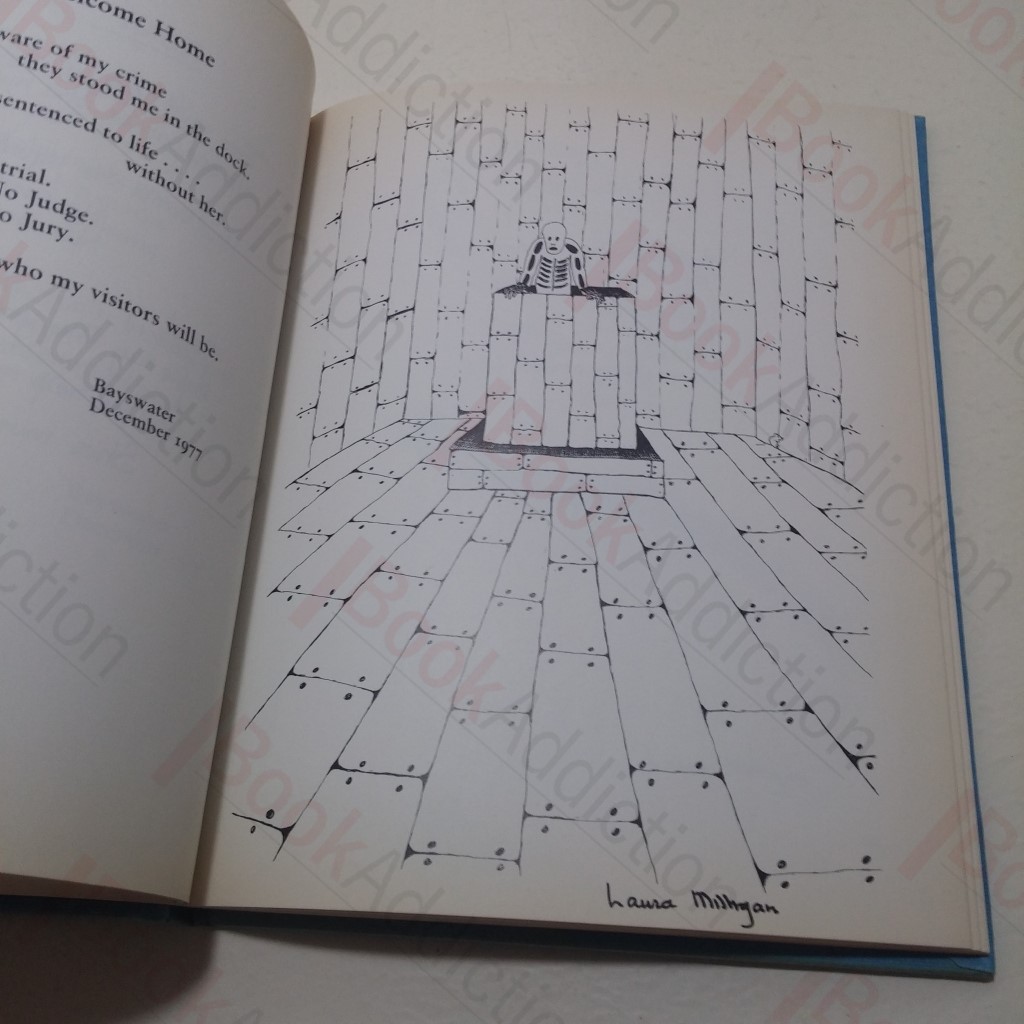 lcome Home
ware of my crime
they stood me in the dock.
sentenced to life . . .
without her.
trial.
No Judge.
o Jury.
who my visitors will be.
Bayswater
December 1977
Laura Milligan
BookAddiction